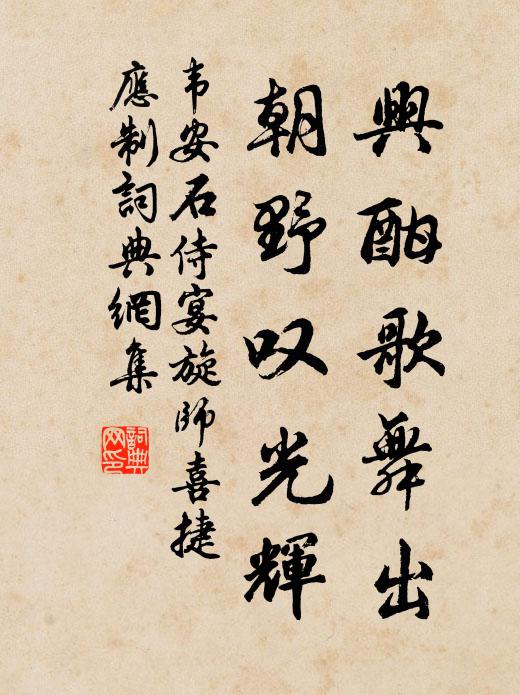 興酣歌舞出
朝野叹光輝
韦安石侍宴旋師喜捷
應制詞典網集
詞典
网印